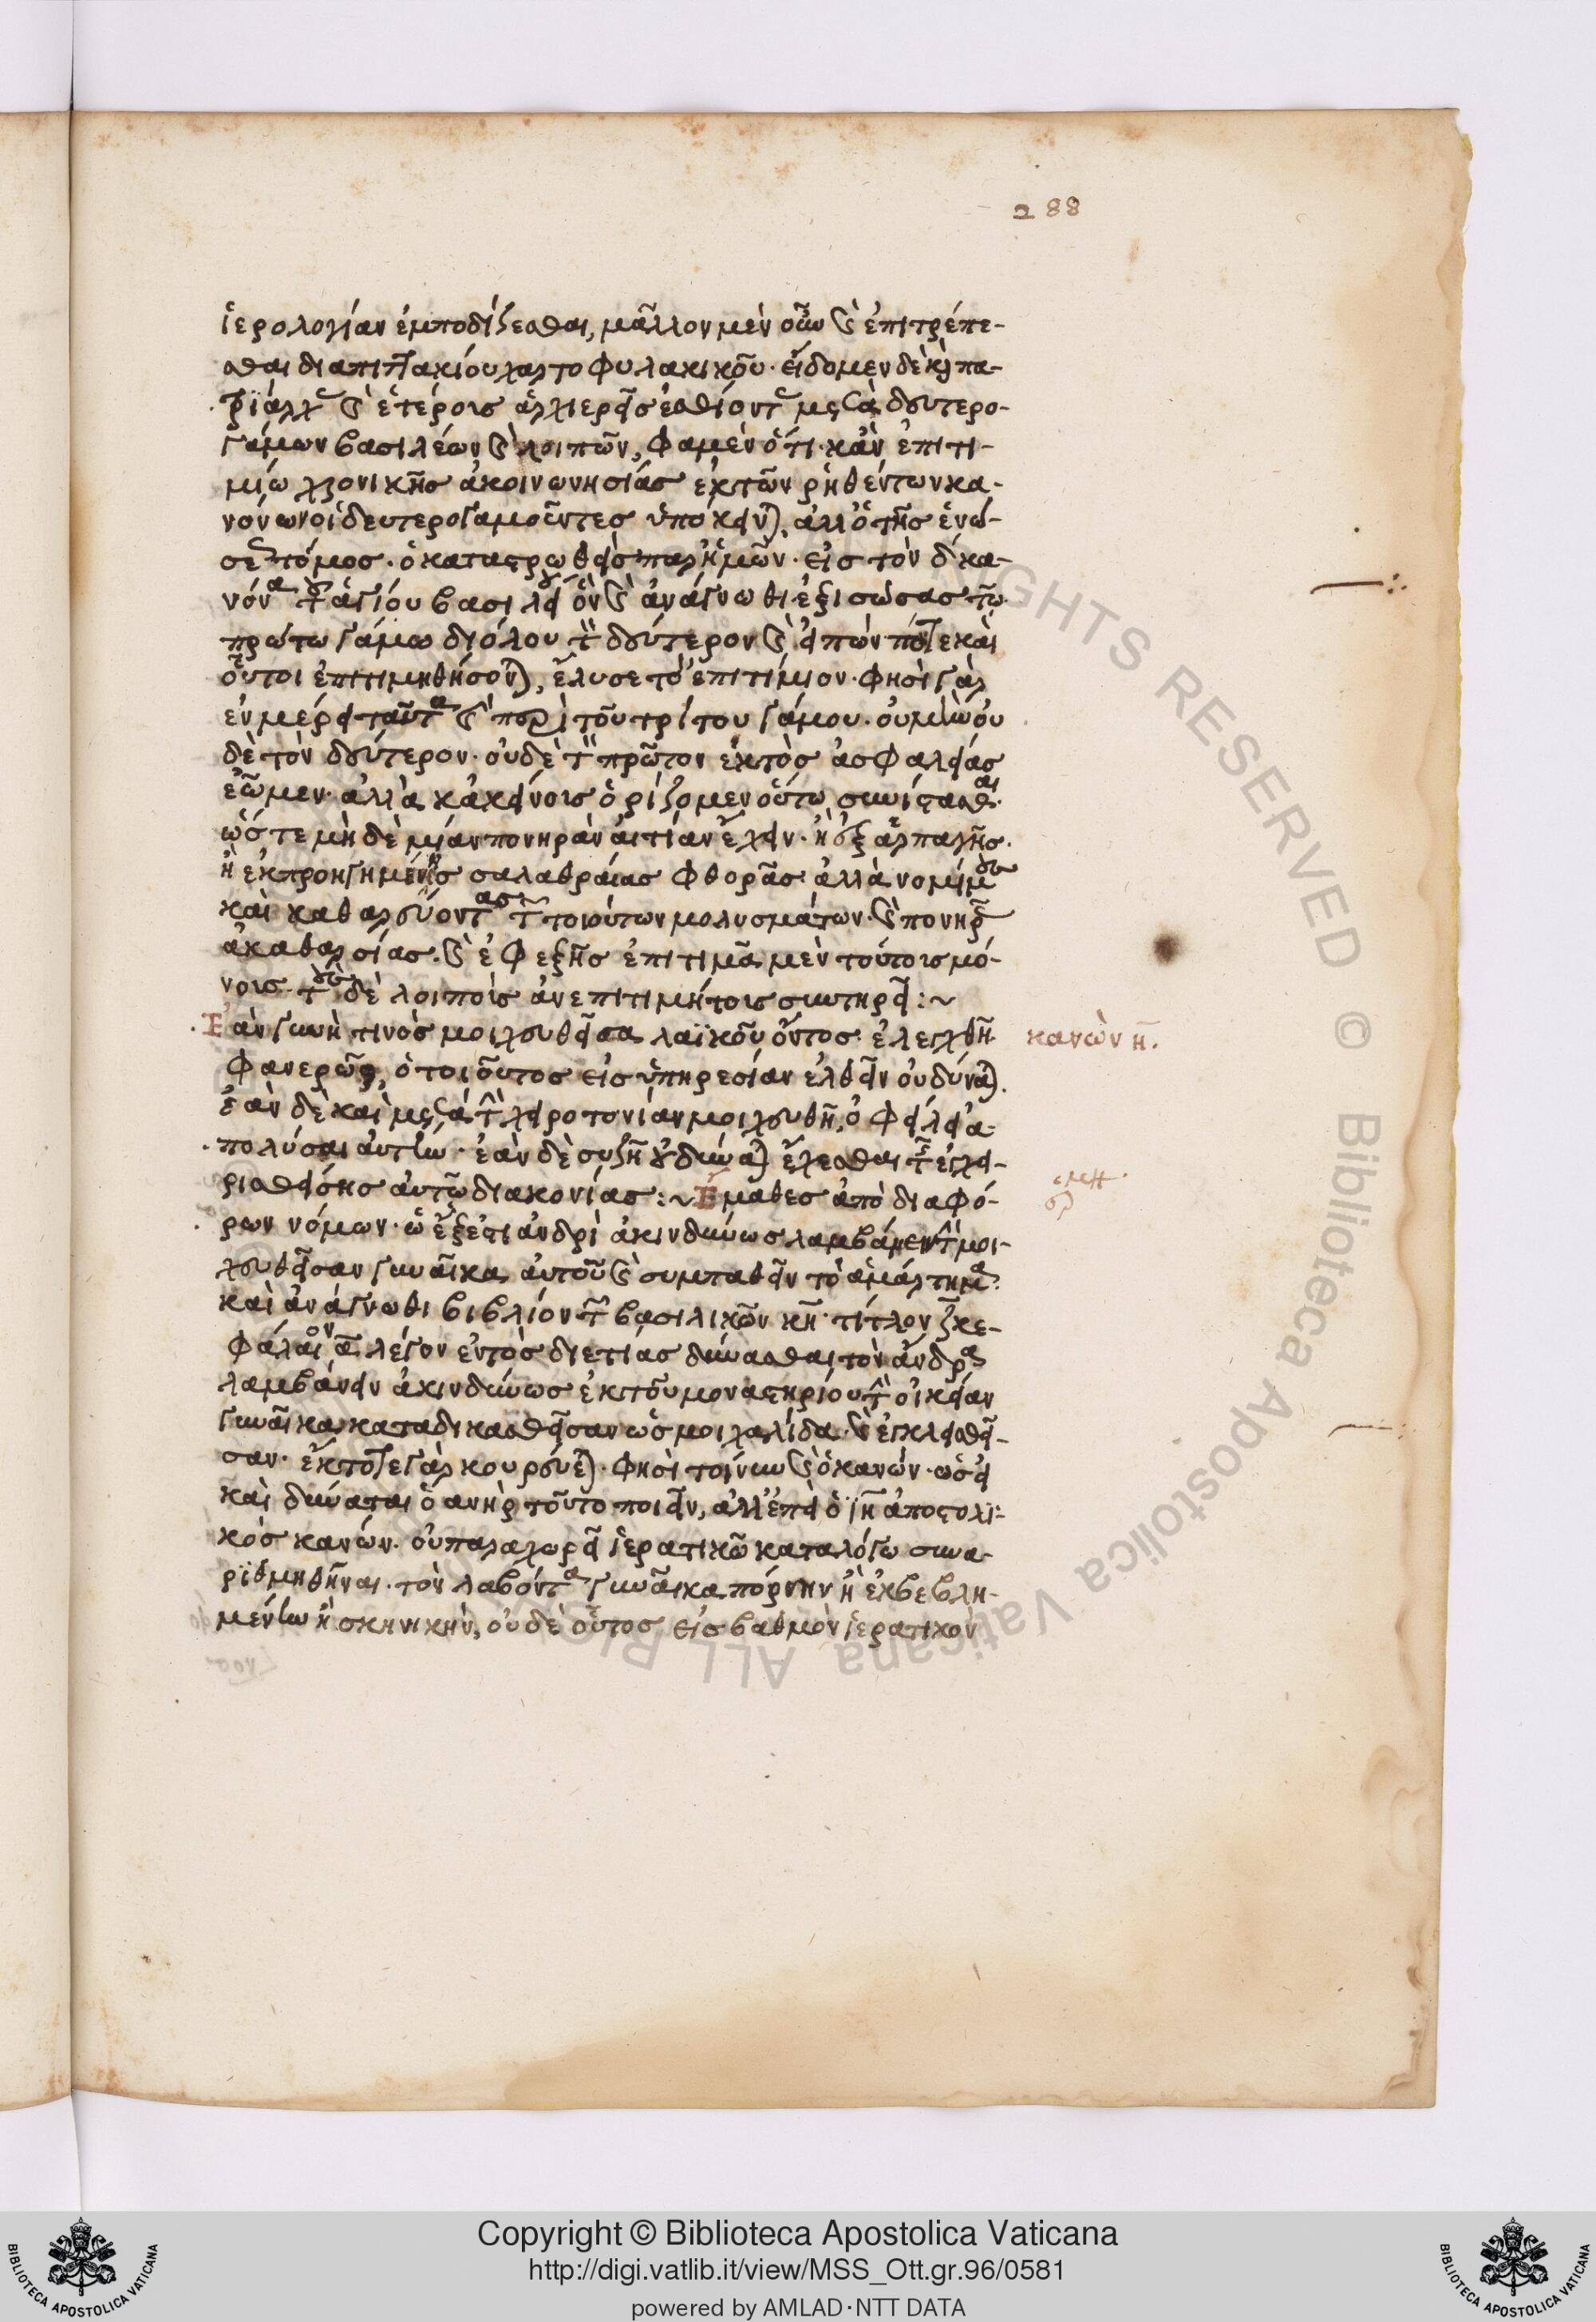 288
ἱερολογίαν ἐμποδίζεσθαι, μᾶλλον μὲν οὖν καὶ ἐπιτρέπε-
σθαι διαπιττακίου χαρτοφυλακικοῦ· εἴδομεν δὲ καὶ πα-
τριάρχας καὶ ἑτέροις ἀρχιερεῖς ἐσθίοντας μετὰ δευτερο-
γάμων βασιλέων καὶ λοιπῶν, φαμὲν ὅτι κἂν ἐπιτι-
μίω χρονικῆς ἀκοινωνησίας ἐκ τῶν ῥηθέντων κα-
νόνων οἱ δευτερογαμοῦντες ὑπόκεινται, ἀλλ' ὁ τῆς ἑνώ-
σεως τόμος· ὁ καταστρωθεὶς παρ' ἡμῶν· εἰς τὸν δ κα-
νόνα τοῦ ἁγίου βασιλείου ὃν καὶ ἀνάγνωθι ἐξισώσας τῶ
πρώτω γάμω διόλου τὸν δεύτερον καὶ εἰπὼν πότε καὶ
οὗτοι ἐπιτιμηθήσονται, ἔλυσε τὸ ἐπιτίμιον· φησὶ γὰρ
ἐν μέρει ταῦτα καὶ περὶ τοῦ τρίτου γάμου· οὐ μὴν οὐ
δὲ τὸν δεύτερον· οὐδὲ τὸν πρῶτον ἐκτὸς ἀσφαλείας
ἐῶμεν· ἀλλὰ κἀκείνοις ὁρίζομεν οὕτω συνίστασθαι·
ὥστε μὴ δὲ μίαν πονηρὰν αἰτίαν ἔχειν· ἢ ἐξ ἁρπαγῆς·
ἢ ἐκ προηγημένης σαλαθραίας φθορᾶς ἀλλὰ νομίμους
καὶ καθαρεύοντας τῶν τοιούτων μολυσμάτων· καὶ πονηρᾶς
ἀκαθαρσίας· καὶ ἐφεξῆς ἐπιτιμᾶ μὲν τούτοις μό-
νοις· τοὺς δὲ λοιποὺς ἀνεπιτιμήτοις συντηρεῖ:~
Ἐὰν γυνή τινος μοιχευθεῖσα λαϊκοῦ ὄντος ἐλεγχθῆ
κανὼν η.
φανερῶς, ὁ τοιοῦτος εἰς ὑπηρεσίαν ἐλθεῖν οὐ δύναται.
ἐὰν δὲ καὶ μετὰ τὴν χειροτονίαν μοιχευθῆ, ὀφείλει ἀ-
πολῦσαι αὐτὴν· ἐὰν δὲ συζῆ οὐ δύναται ἔχεσθαι τῆς ἐγχει-
ρισθείσης αὐτῶ διακονίας:~ Ἔμαθες ἀπὸ διαφό-
ρων νόμων· ὡς ἔξεστι ἀνδρὶ ἀκινδύνως λαμβάνειν τὴν μοι-
χευθεῖσαν γυναῖκα αὐτοῦ καὶ συμπαθεῖν τὸ ἁμάρτημα·
καὶ ἀνάγνωθι βιβλίον τῶν βασιλικῶν κη· τίτλον ζ κε-
φάλαιον α λέγον ἐντὸς διετίας δύνασθαι τὸν ἄνδρα
λαμβάνειν ἀκινδύνως ἐκ τοῦ μοναστηρίου τὴν οἰκείαν
γυναῖκα καταδικασθεῖσαν ὡς μοιχαλίδα· καὶ ἐγκλεισθεῖ-
σαν· ἔκτοτε γὰρ κουρεύεται· φησὶ τοίνυν καὶ ὁ κανών· ὡς εἰ
καὶ δύναται ὁ ἀνὴρ τοῦτο ποιεῖν, ἀλλ' ἐπεὶ ὁ ιη ἀποστολι-
κὸς κανών· οὐ παραχωρεῖ ἱερατικῶ καταλόγω συνα-
ριθμηθῆναι· τὸν λαβόντα γυναῖκα πόρνην ἢ ἐκβεβλη-
μένην ἢ σκηνικὴν, οὐδὲ οὗτος εἰς βαθμὸν ἱερατικὸν
RIGHTS RESERVED © Biblioteca Apostolica Vaticana ALL
Copyright © Biblioteca Apostolica Vaticana
http://digi.vatlib.it/view/MSS_Ott.gr.96/0581
powered by AMLAD·NTT DATA
BIBLIOTECA APOSTOLICA VATICANA
BIBLIOTECA APOSTOLICA VATICANA